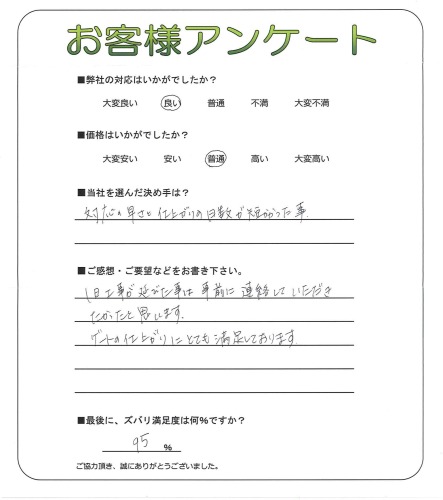 お客様アンケート
■弊社の対応はいかがでしたか？
大変良い 良い 普通 不満 大変不満
■価格はいかがでしたか？
大変安い 安い 普通 高い 大変高い
■当社を選んだ決め手は？
対応の早さと仕上がりの日数が短かった事.
■ご感想・ご要望などをお書き下さい。
1日工事が延びた事は事前に連絡していただき
たかったと思います.
ゲートの仕上がりにとても満足しております.
■最後に、ズバリ満足度は何%ですか？
95 %
ご協力頂き、誠にありがとうございました。